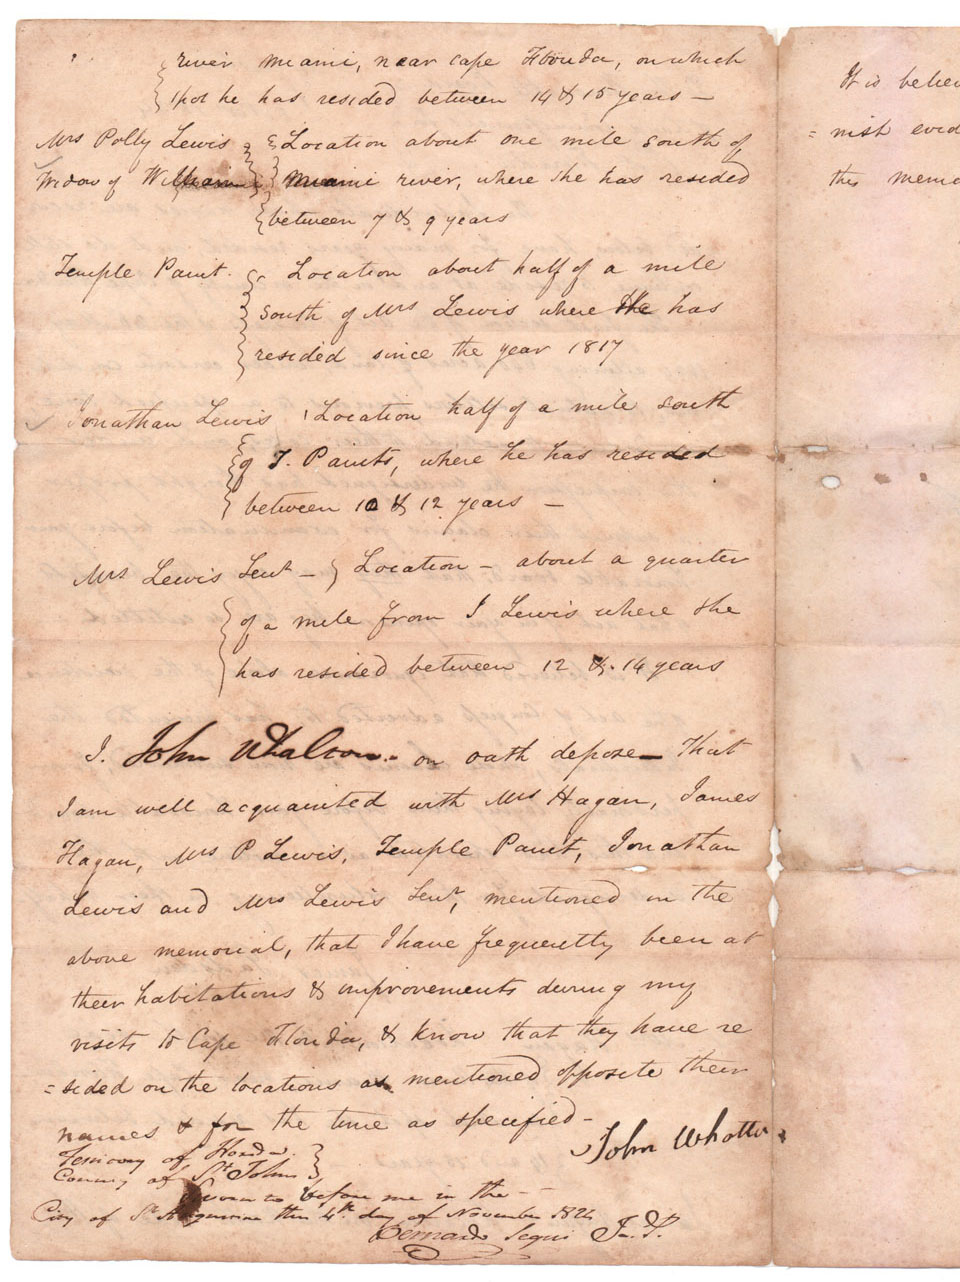 river Miami, near Cape Florida, on which
spot he has resided between 14 & 15 years —
Mrs Polly Lewis Location about one mile South of
Widow of Miami river, where She has resided
between 7 & 9 years
Temple Paint. Location about half of a mile
South of Mrs Lewis where He has
resided since the year 1817
Jonathan Lewis Location half of a mile South
of T. Paints, where he has resided
between 10 & 12 years —
Mrs Lewis Senr — Location — about a quarter
of a mile from J Lewis where She
has resided between 12 & 14 years
I. John on oath depose — That
I am well acquainted with Mrs Hagan, James
Hagan, Mrs P Lewis, Temple Paint, Jonathan
Lewis and Mrs Lewis Senr, mentioned in the
above memorial, that I have frequently been at
their habitations & improvements during my
visits to Cape Florida, & know that they have re
=sided on the locations as mentioned opposite their
names & for the time as specified —
John
Territory of Florida
County of St Johns
Sworn to before me in the —
City of St Augustine this 4th day of November 1824
Bernardo Segui J.P.
It is believ
=nish evid
this memo